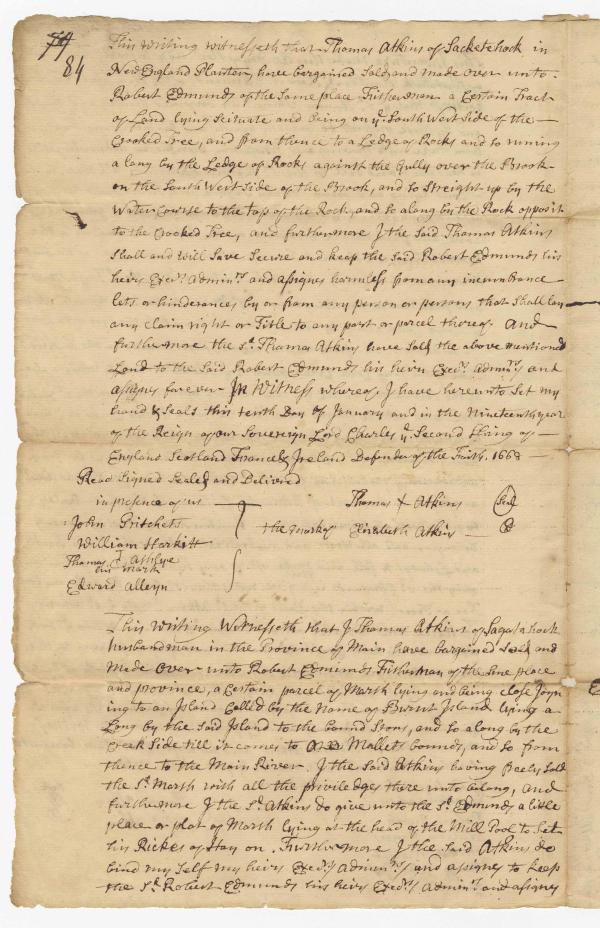 84
This Writing witnesseth that Thomas Atkins of Sacketehock in
New England Planter, have bargained Sold, and made over unto
Robert Edmunds of the Same place Fisherman a Certain Tract
of Land lying Scituate and being on yᵉ South West Side of the
Crooked Tree, and from thence to a Ledge of Rocks and so runing
a long by the Ledge of Rocks against the Gully over the Brook
on the South West Side of the Brook, and so Streight up by the
Water Course to the top of the Rock, and so along by the Rock opposit
to the Crooked Tree, and furthermore I the said Thomas Atkins
Shall and will Save Secure and keep the Said Robert Edmunds his
heirs Execʳˢ Adminʳˢ and assignes harmless from any incumbrance
lets or hinderances by or from any person or persons that Shall lay
any claim right or Title to any part or parcel thereof. And
furthermore the sᵈ. Thomas Atkins have Sold the above mentioned
Land to the Said Robert Edmunds his heirs Execʳˢ Adminʳˢ and
assignes forever In Witness whereof, I have hereunto Set my
hand & Seals this tenth Day of January and in the Nineteenth year
of the Reign of our Sovereign Lord Charles yᵉ Second King of
England Scotland France & Ireland Defender of the Faith. 1668
Read Signed Sealed and Delivered
in presence of us
Thomas X Atkins Seal
John Pritchets
the mark of Elizabeth Atkins
William Harkitt
Thomas Atkyse
his mark
Edward Alleyn
This Writing Witnesseth that I Thomas Atkins of Sagatahock
husbandman in the Province of Main have bargained Sold and
made Over unto Robert Edmunds Fisherman of the Same place
and province, a Certain parcel of Marsh lying and being close Joyn
ing to an Island Called by the Name of Burnt Island lying a
Long by the Said Island to the bound Stons, and so along by the
Creek Side till it comes to Mallets bounds, and so from
thence to the Main River. I the Said Atkins having freely Sold
the sᵈ Marsh with all the priviledges there unto belong, And
furthermore I the sᵈ Atkins do give unto the sᵈ Edmunds a little
place or plot of Marsh lying at the head of the Mill Pool to Set
his Rickes of Hay on. Furthermore I the Said Atkins do
bind my Self my heirs Execʳˢ Adminʳˢ and assignes to keep
the sᵈ Robert Edmunds his heirs Execʳˢ Adminʳˢ and assignes